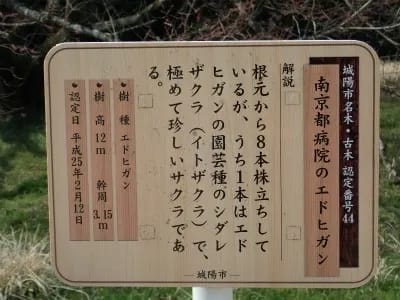 城陽市名木・古木 認定番号44
南京都病院のエドヒガン
解説
根元から8本株立ちして
いるが、うち1本はエド
ヒガンの園芸種のシダレ
ザクラ(イトザクラ)で、
極めて珍しいサクラであ
る。
樹種 エドヒガン
樹高 12m 幹周 3.15m
認定日 平成25年2月12日
城陽市